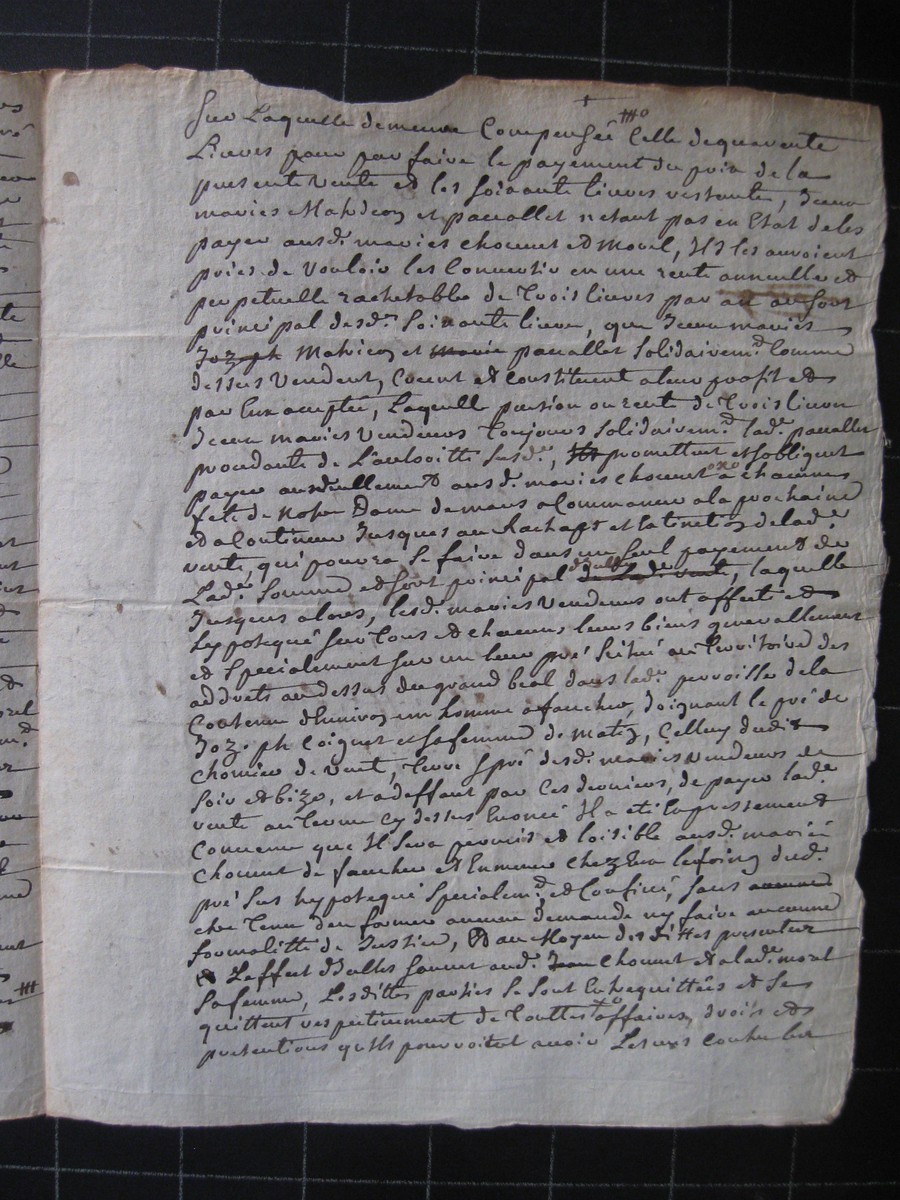 sur Laquelle demeure Compensée Celle dequarente
Livres pour par faire le payement du prix de la
presente Vente et les soixante livres restante, Iceux
mariés Mahicon et paucallet netant pas en Etat deles
payer ausd. mariés chomet et Morel, Ils les auroient
priés de Vouloir les Convertir en une rente annuelle et
perpetuelle rachetable de trois livres par an au sort
principal desd. soixante livres, que Iceux mariés
Jozeph Mahicon et marie paucallet solidairemt. Comme
dessus Vendent, Creent et constituent a leur profit et
par Eux acceptée, Laquelle pension ou rente de trois livres
Iceux mariés Vendeurs toujours solidairemt. lade. paucallet
procedante de L'authoritté susde., Ils promettent et sobligent
payer annuellement ausd. mariés chomet a chacunes
fete de notre Dame de mars a Commancer a la prochaine
et a Continuer Jusques au Rachapt et extinction de lade.
rente, qui pourra se faire dans un seul payement de
Lade. somme et sort principal de lade. rente, laquelle
Jusques alors, lesd. mariés Vendeurs ont affecté et
hypotequé sur tous et chacuns leurs biens generallement
et specialement sur un leur pré scitué au territoire des
addrets au dessus du grand beal dans lade. parroisse de la
Contenue d'Environ un homme a faucher, Joignant le pré de
Jozeph Coignet et sa femme de matin, Celluy dudit
chomier de Vent, terre & pré desd. mariés Vendeurs de
soir et bize, et a deffaut par Ces derniers, de payer lade.
rente au terme cy dessus Enoncé Il a eté Expressement
Convenu que Il sera permis et loisible ausd. mariés
chomet de faucher et Emmener chez Eux le foing dud.
pré sus hypotequé specialemt. et Confiné, sans aucune
etre tenu d'en former aucune demande ny faire aucunne
formalitté de Justice, Et au Moyen desdittes presentes
& L'effect d'Icelles sauve aud. Jean Chomet et a lade. morel
sa femme, Lesdittes parties se sont Entrequittées et se
quittent respectivement de touttes affaires, droits et
pretentions quils pourroient avoir Les uns contre les